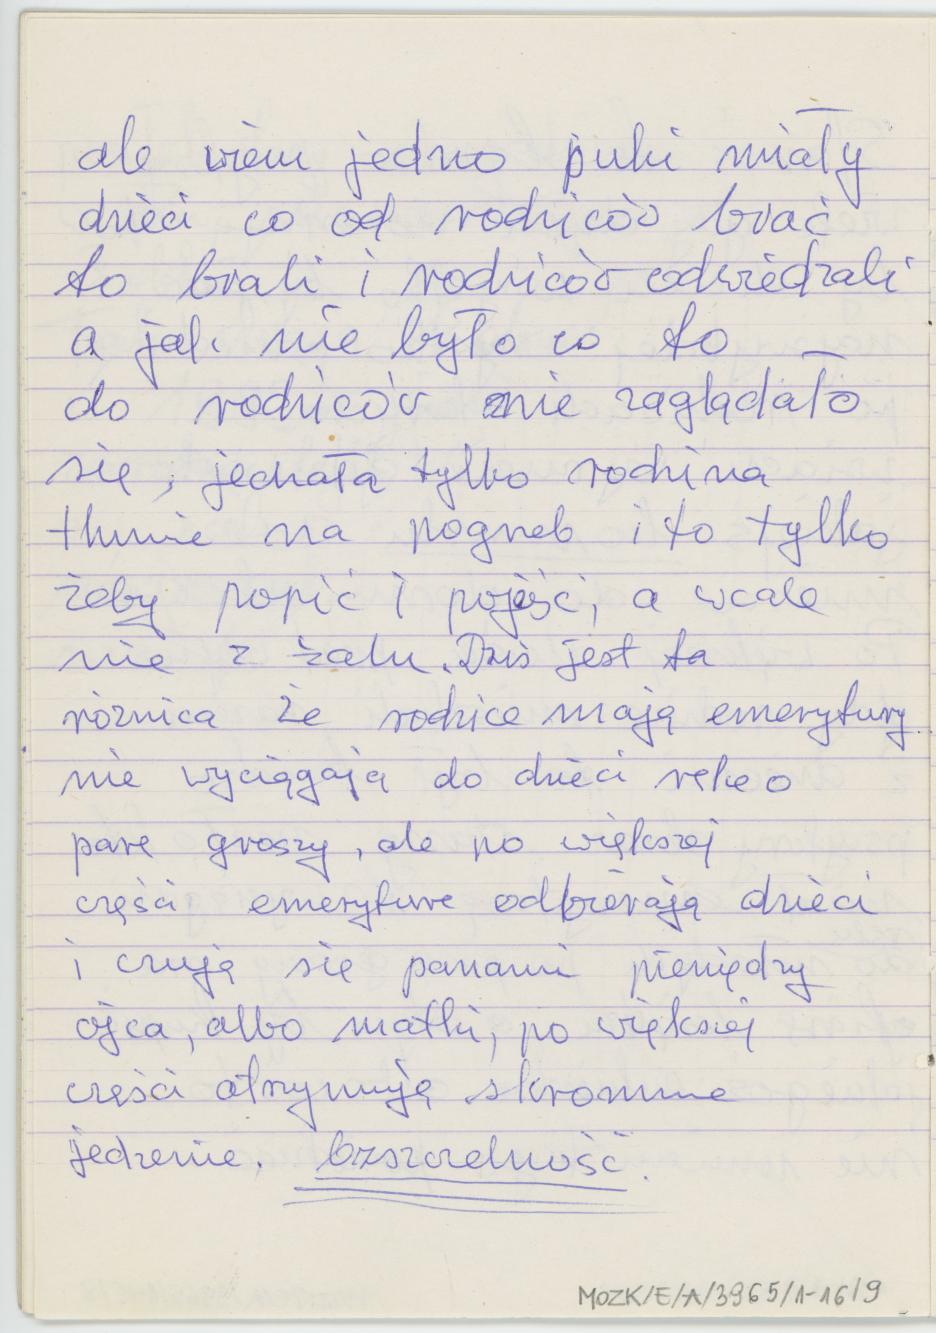 ale wiem jedno puki miały
dzieci co od rodziców brać
to brali i rodziców odwiedzali
a jak nie było co to
do rodziców nie zaglądało
się, jechała tylko rodzina
tłumie na pogrzeb i to tylko
żeby popić i pojeść, a wcale
nie z żalu. Dziś jest ta
różnica że rodzice mają emerytury
nie wyciągają do dzieci ręke o
parę groszy, ale po większej
części emeryture odbierają dzieci
i czują się panami pieniędzy
ojca, albo matki, po większej
części otrzymują skromne
jedzenie. bzszczelność.
MOZK/E/A/3965/1-16/9